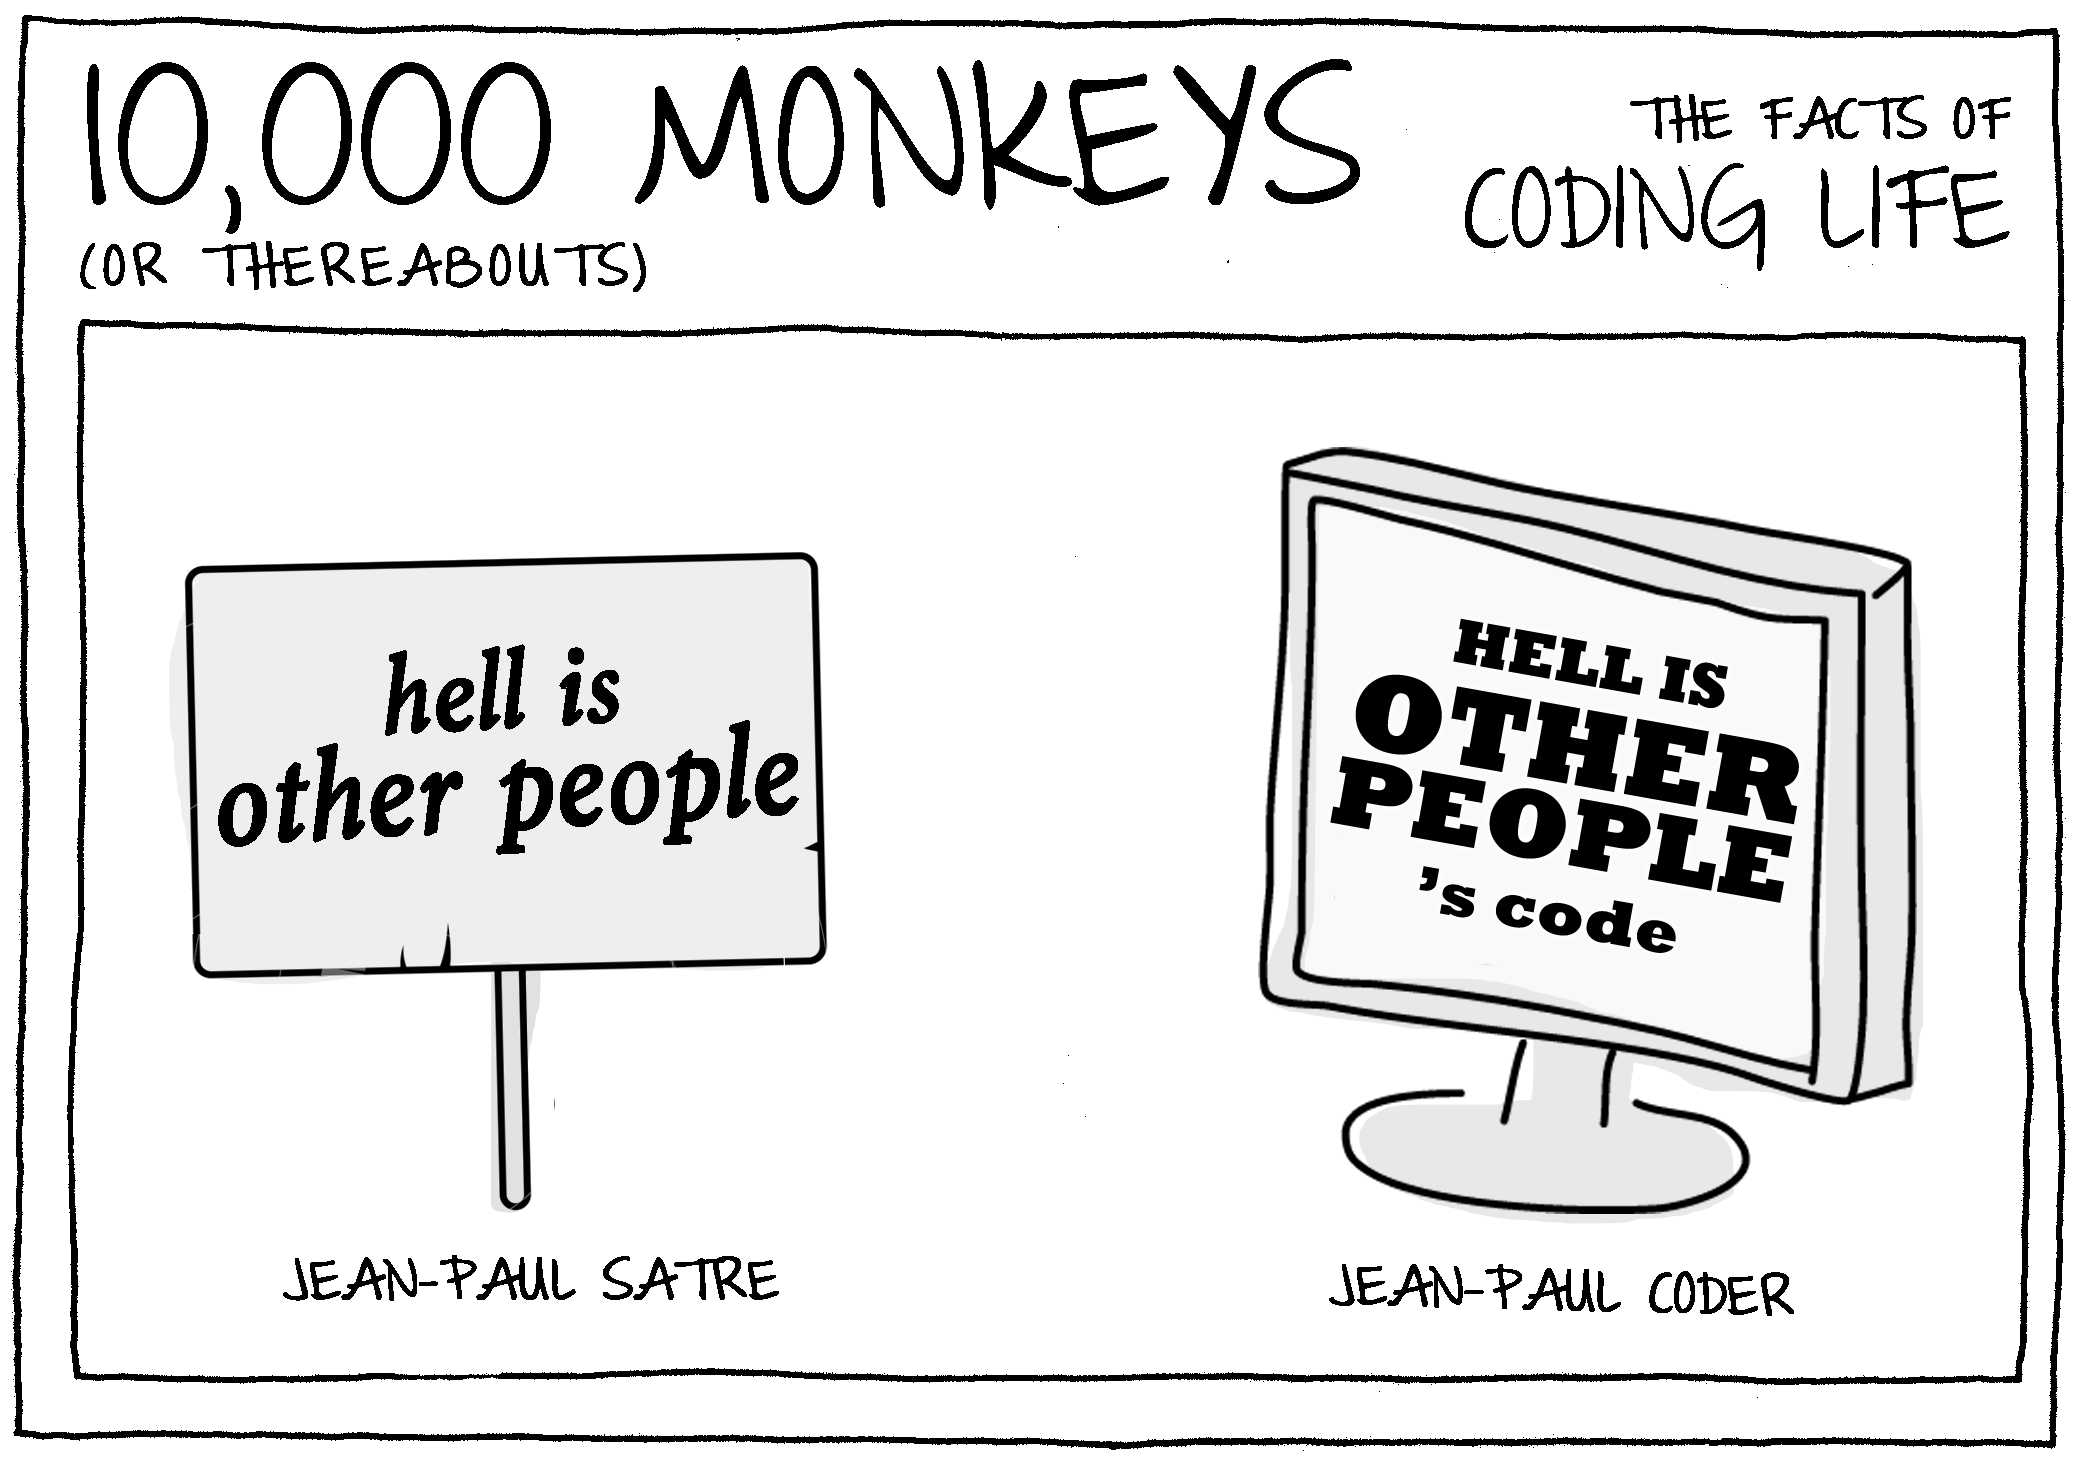 10,000 MONKEYS
(OR THEREABOUTS)
THE FACTS OF
CODING LIFE
hell is
other people
JEAN-PAUL SATRE
HELL IS
OTHER
PEOPLE
's code
JEAN-PAUL CODER